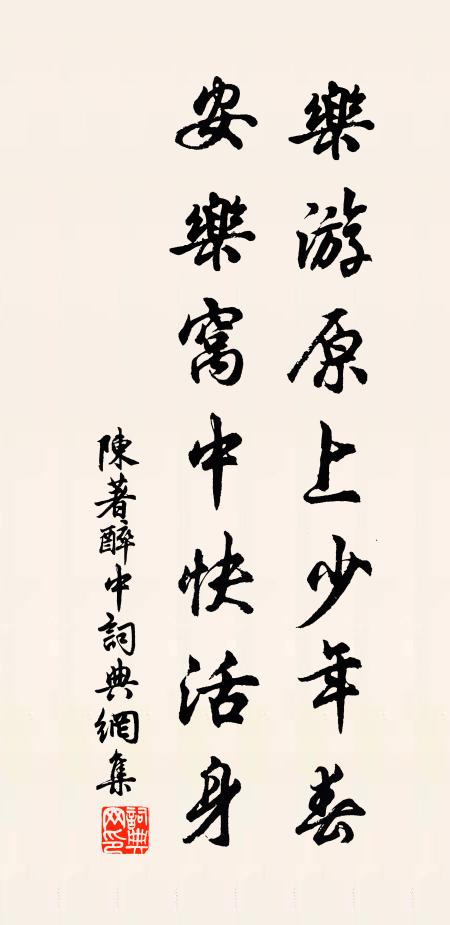 樂游原上少年春
安樂窩中快活身
陳著醉中詞典網集
詞典網印